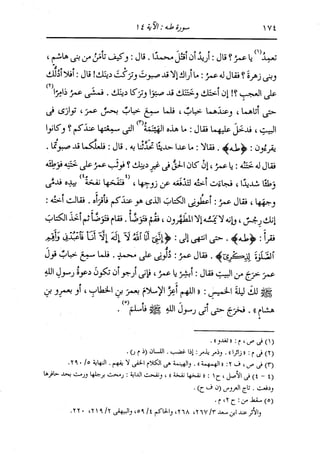 ١٧٤ سورة طه: الآية ١٤
تعمِد(١) يا عمرُ؟ قال: أريدُ أن أقتلَ محمدًا. قال: وكيف تأمنُ من بنى هاشمٍ،
وبنى زهرةَ؟ فقال له عمرُ: ما أراك إلا قد صبوتَ وتركتَ دينَك! قال: أفلا أدلُّك
على العجبِ؟! إن أختَك وختنَك قد صبوَا وتركا دينَك. فمشى عمرُ ذامرًا(٢)
حتى أتاهما، وعندهما خبابٌ، فلما سمِع خبابٌ بحسِّ عمرَ، توارَى فى
البيتِ، فدخَل عليهما فقال: ما هذه الهَيْنَمةُ(٣) التى سمِعتُها عندَكم؟ وكانوا
يقرءُون: ﴿طه﴾. فقالا: ما عدا حديثًا تحدَّثنا به. قال: فلعلَّكما قد صبوتُما.
فقال له ختنُه: يا عمرُ، إن كان الحقُّ فى غيرِ دينِك؟ فوثَب عمرُ على ختنِه فوطِئه
وطْئًا شديدًا، فجاءت أختُه لتدفعَه عن زوجِها، (٤فنفَحها نفحةً٤) بيدِه فدمَّى
وجهَها، فقال عمرُ: أعطُونى الكتابَ الذى هو عندَكم فأقرَأَه. فقالت أختُه:
إنك رجسٌ، وإنه لا يمسُّه إلا المطهَّرون، فقم فتوضَّأْ. فقام فتوضَّأ ثم أخَذ الكتابَ
فقرأ: ﴿طه﴾. حتى انتهى إلى: ﴿إِنَّنِىٓ أَنَا ٱللَّهُ لَآ إِلَٰهَ إِلَّآ أَنَا۠ فَٱعْبُدْنِى وَأَقِمِ
ٱلصَّلَوٰةَ لِذِكْرِىٓ﴾. فقال عمرُ: دلُّونى على محمدٍ. فلما سمِع خبابٌ قولَ
عمرَ خرَج من البيتِ فقال: أبشِرْ يا عمرُ، فإنى أرجو أن تكونَ دعوةُ رسولِ اللهِ
ﷺ لك ليلةَ الخميسِ: «اللهم أعِزَّ الإسلامَ بعمرَ بنِ الخطابِ، أو بعمرِو بنِ
هشامٍ». فخرَج حتى أتى رسولَ اللهِ ﷺ فأسلَم(٥).
(١) فى ص، م: «تغدو».
(٢) فى م: «زائرا». وذمر يذمر: إذا غضب. اللسان (ذ م ر).
(٣) فى ص، ف ٢: «الهمهمة». والهينمة هى الكلام الخفى لا يفهم. النهاية ٥/ ٢٩٠.
(٤ - ٤) فى الأصل، ح١: «نفخها نفخة»، ونفحت الدابة: رمحت برجلها ورمت بحد حافرها
ودفعت. تاج العروس (ن ف ح).
(٥) سقط من: ح ٢، م.
والأثر عند ابن سعد ٣/ ٢٦٧، ٢٦٨، والحاكم ٤/ ٥٩، والبيهقى ٢/ ٢١٩، ٢٢٠.